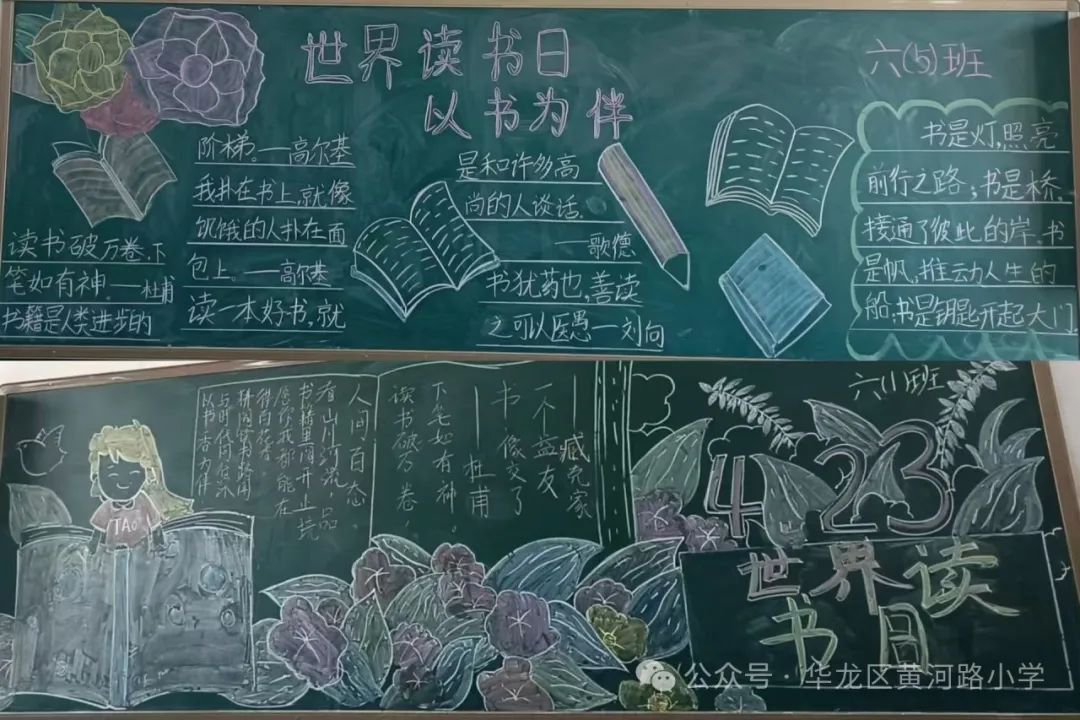 世界读书日
以书为伴
六(5)班
读书破万卷,下
笔如有神。—杜甫
书籍是人类进步的
阶梯。—高尔基
我扑在书上,就像
饥饿的人扑在面
包上。—高尔基
读一本好书,就
是和许多高
尚的人谈话.
—歌德
书犹药也,善读
之可以医愚—刘向
书是灯,照亮
前行之路;书是桥,
接通了彼此的岸,书
是帆,推动人生的
船,书是钥匙开起大门
六(1)班
TAO
以书香为伴
与时代同
得百花香。
愿你我都能在
书籍里
看山川河流,品
人间百态。
读书破万卷,
下笔如有神。
—杜甫
书像交了
一个益友
—臧克家
423
世界读
书日
公众号·华龙区黄河路小学